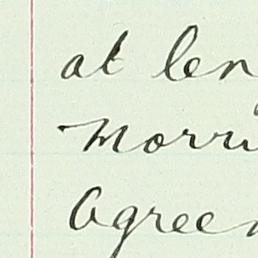 at len
Morri
agree